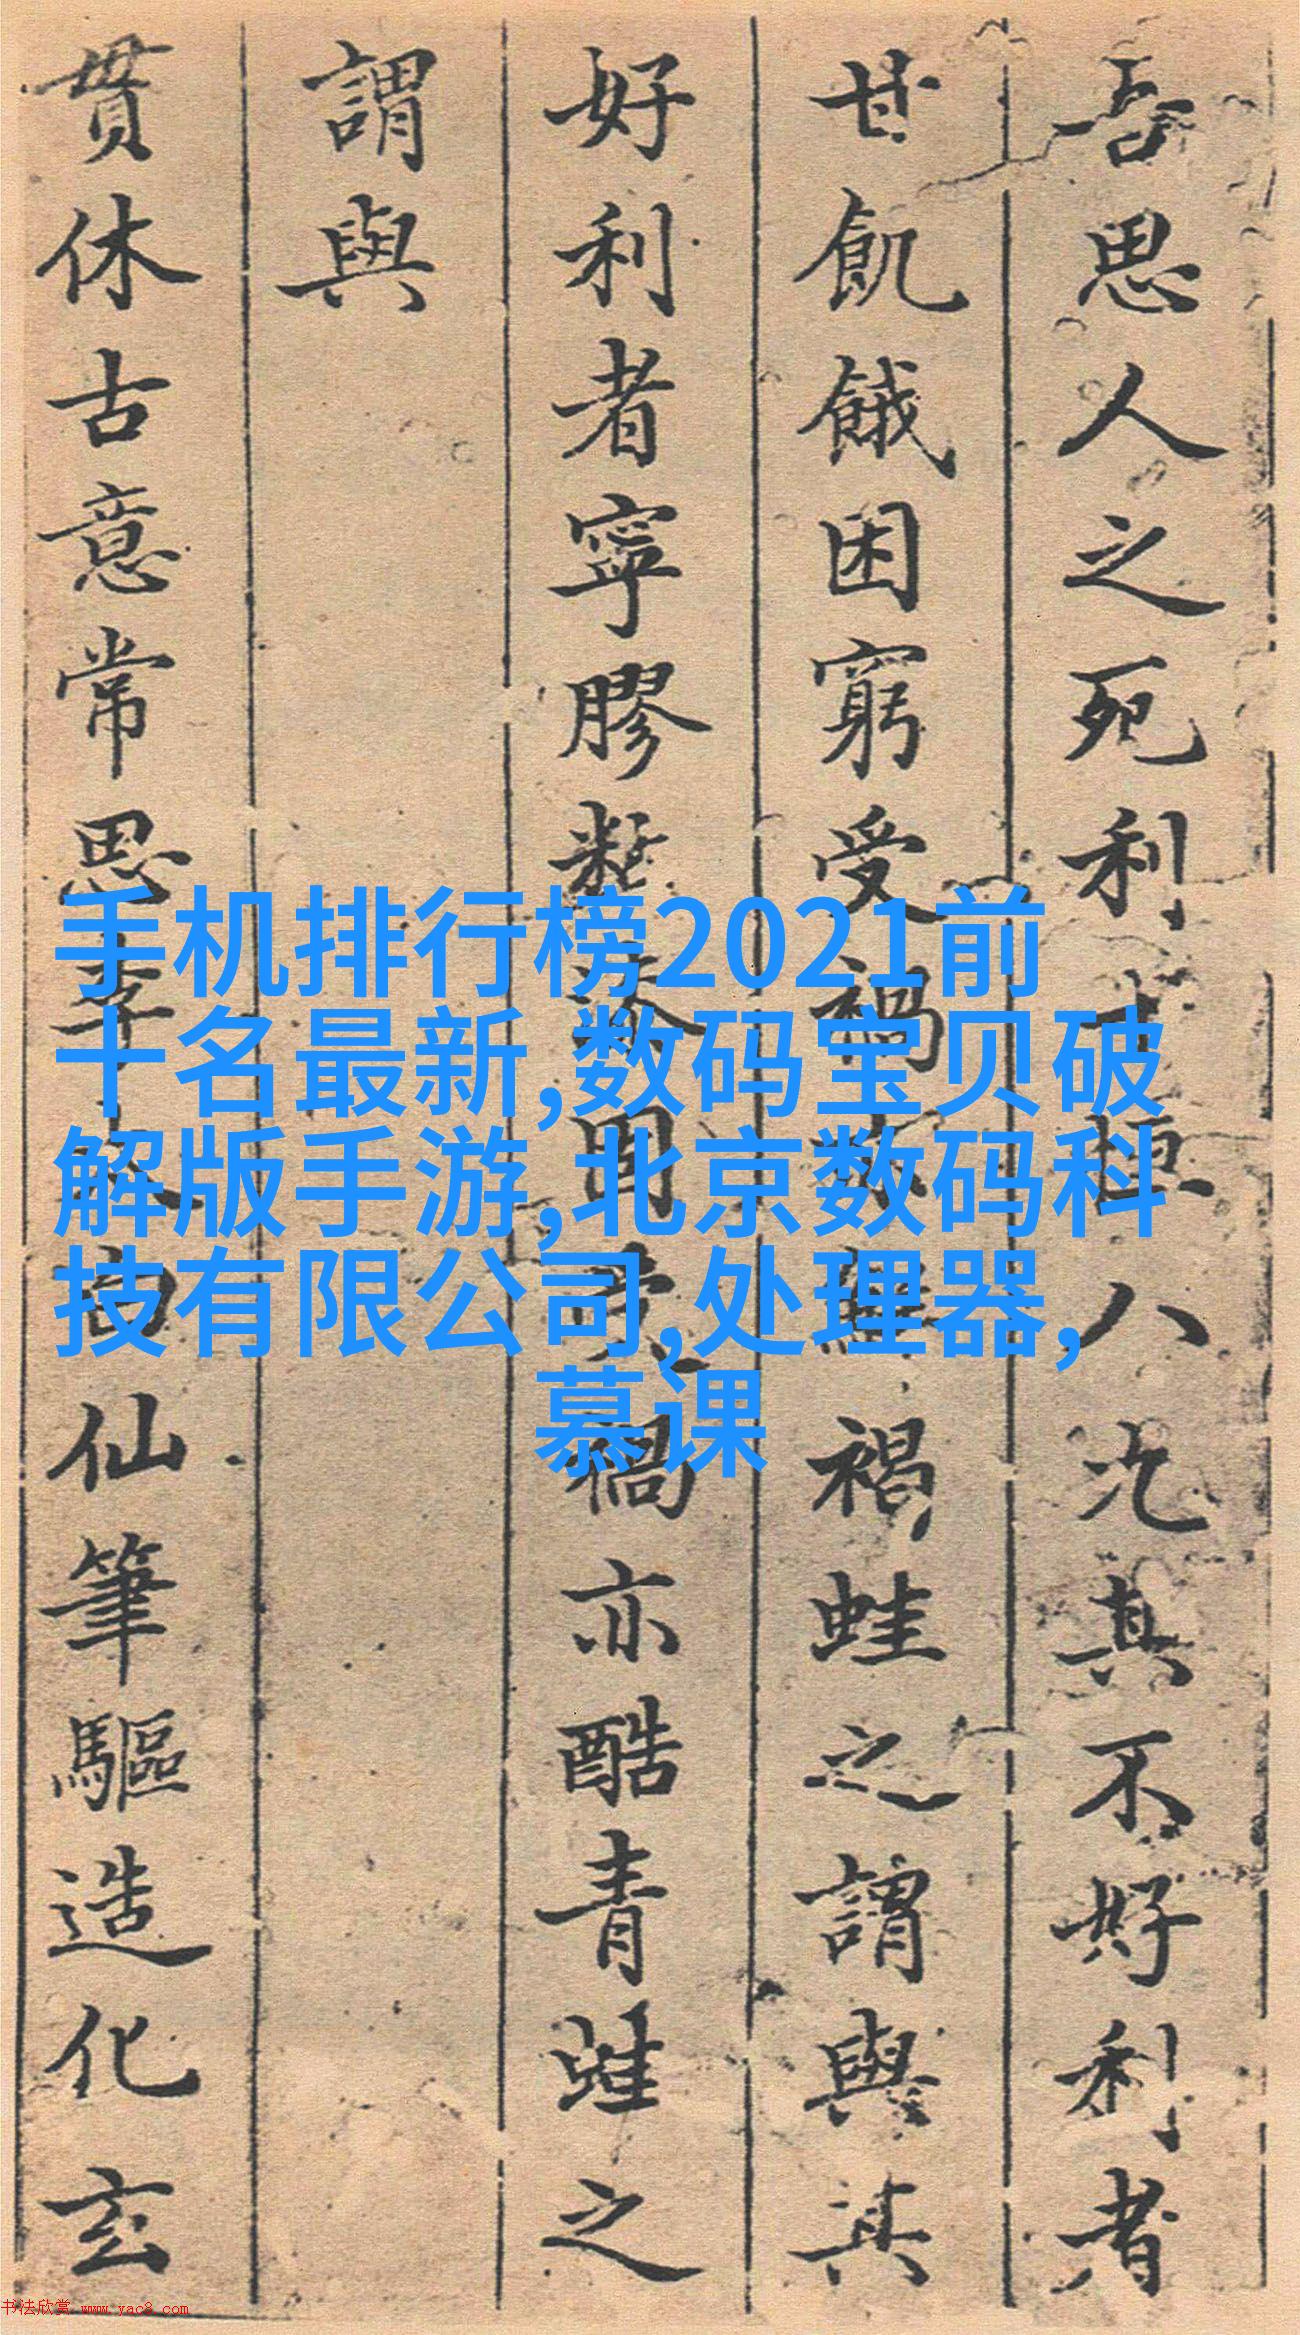 吾思人之死利十恒八九其不好利者
甘飢餓困窮受禍
褐蛙之謂與其
好利者寧膠
禍亦酷青蛙之
謂與
貫休古意常思李太白仙筆驅造化玄
手机排行榜2021前
十名最新,数码宝贝破
解版手游,北京数码科
技有限公司,处理器,
慕课
书法欣赏 www.yac8.com